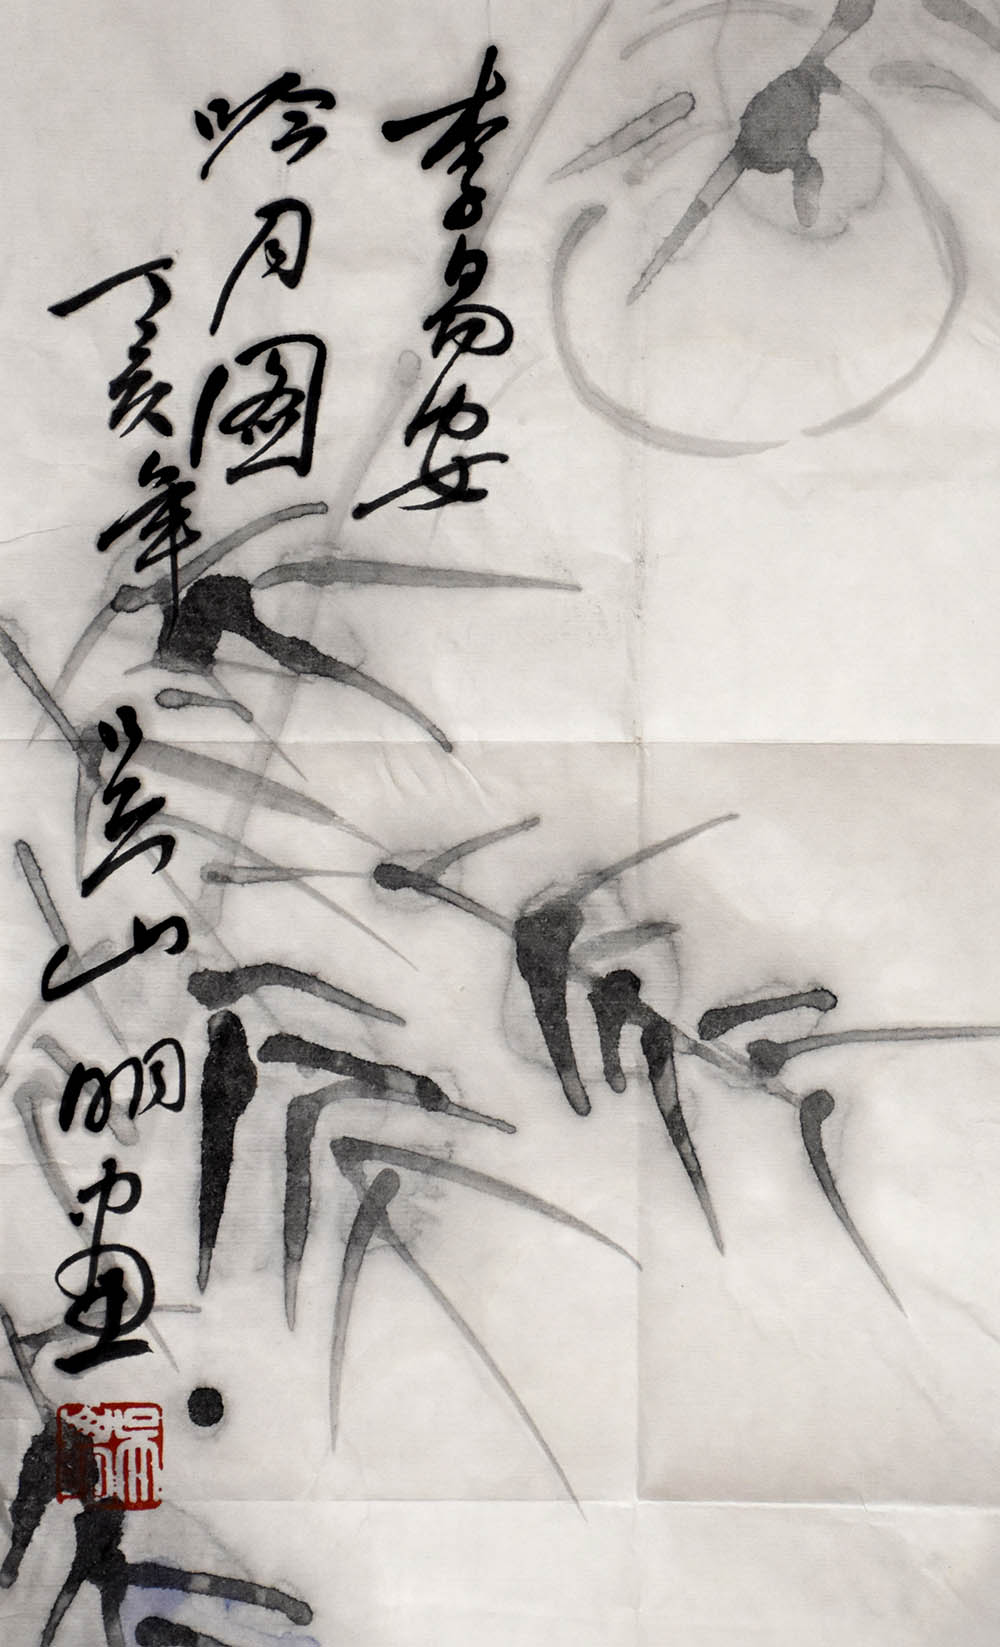 李易安
吟月图
丁亥年
吴山明画